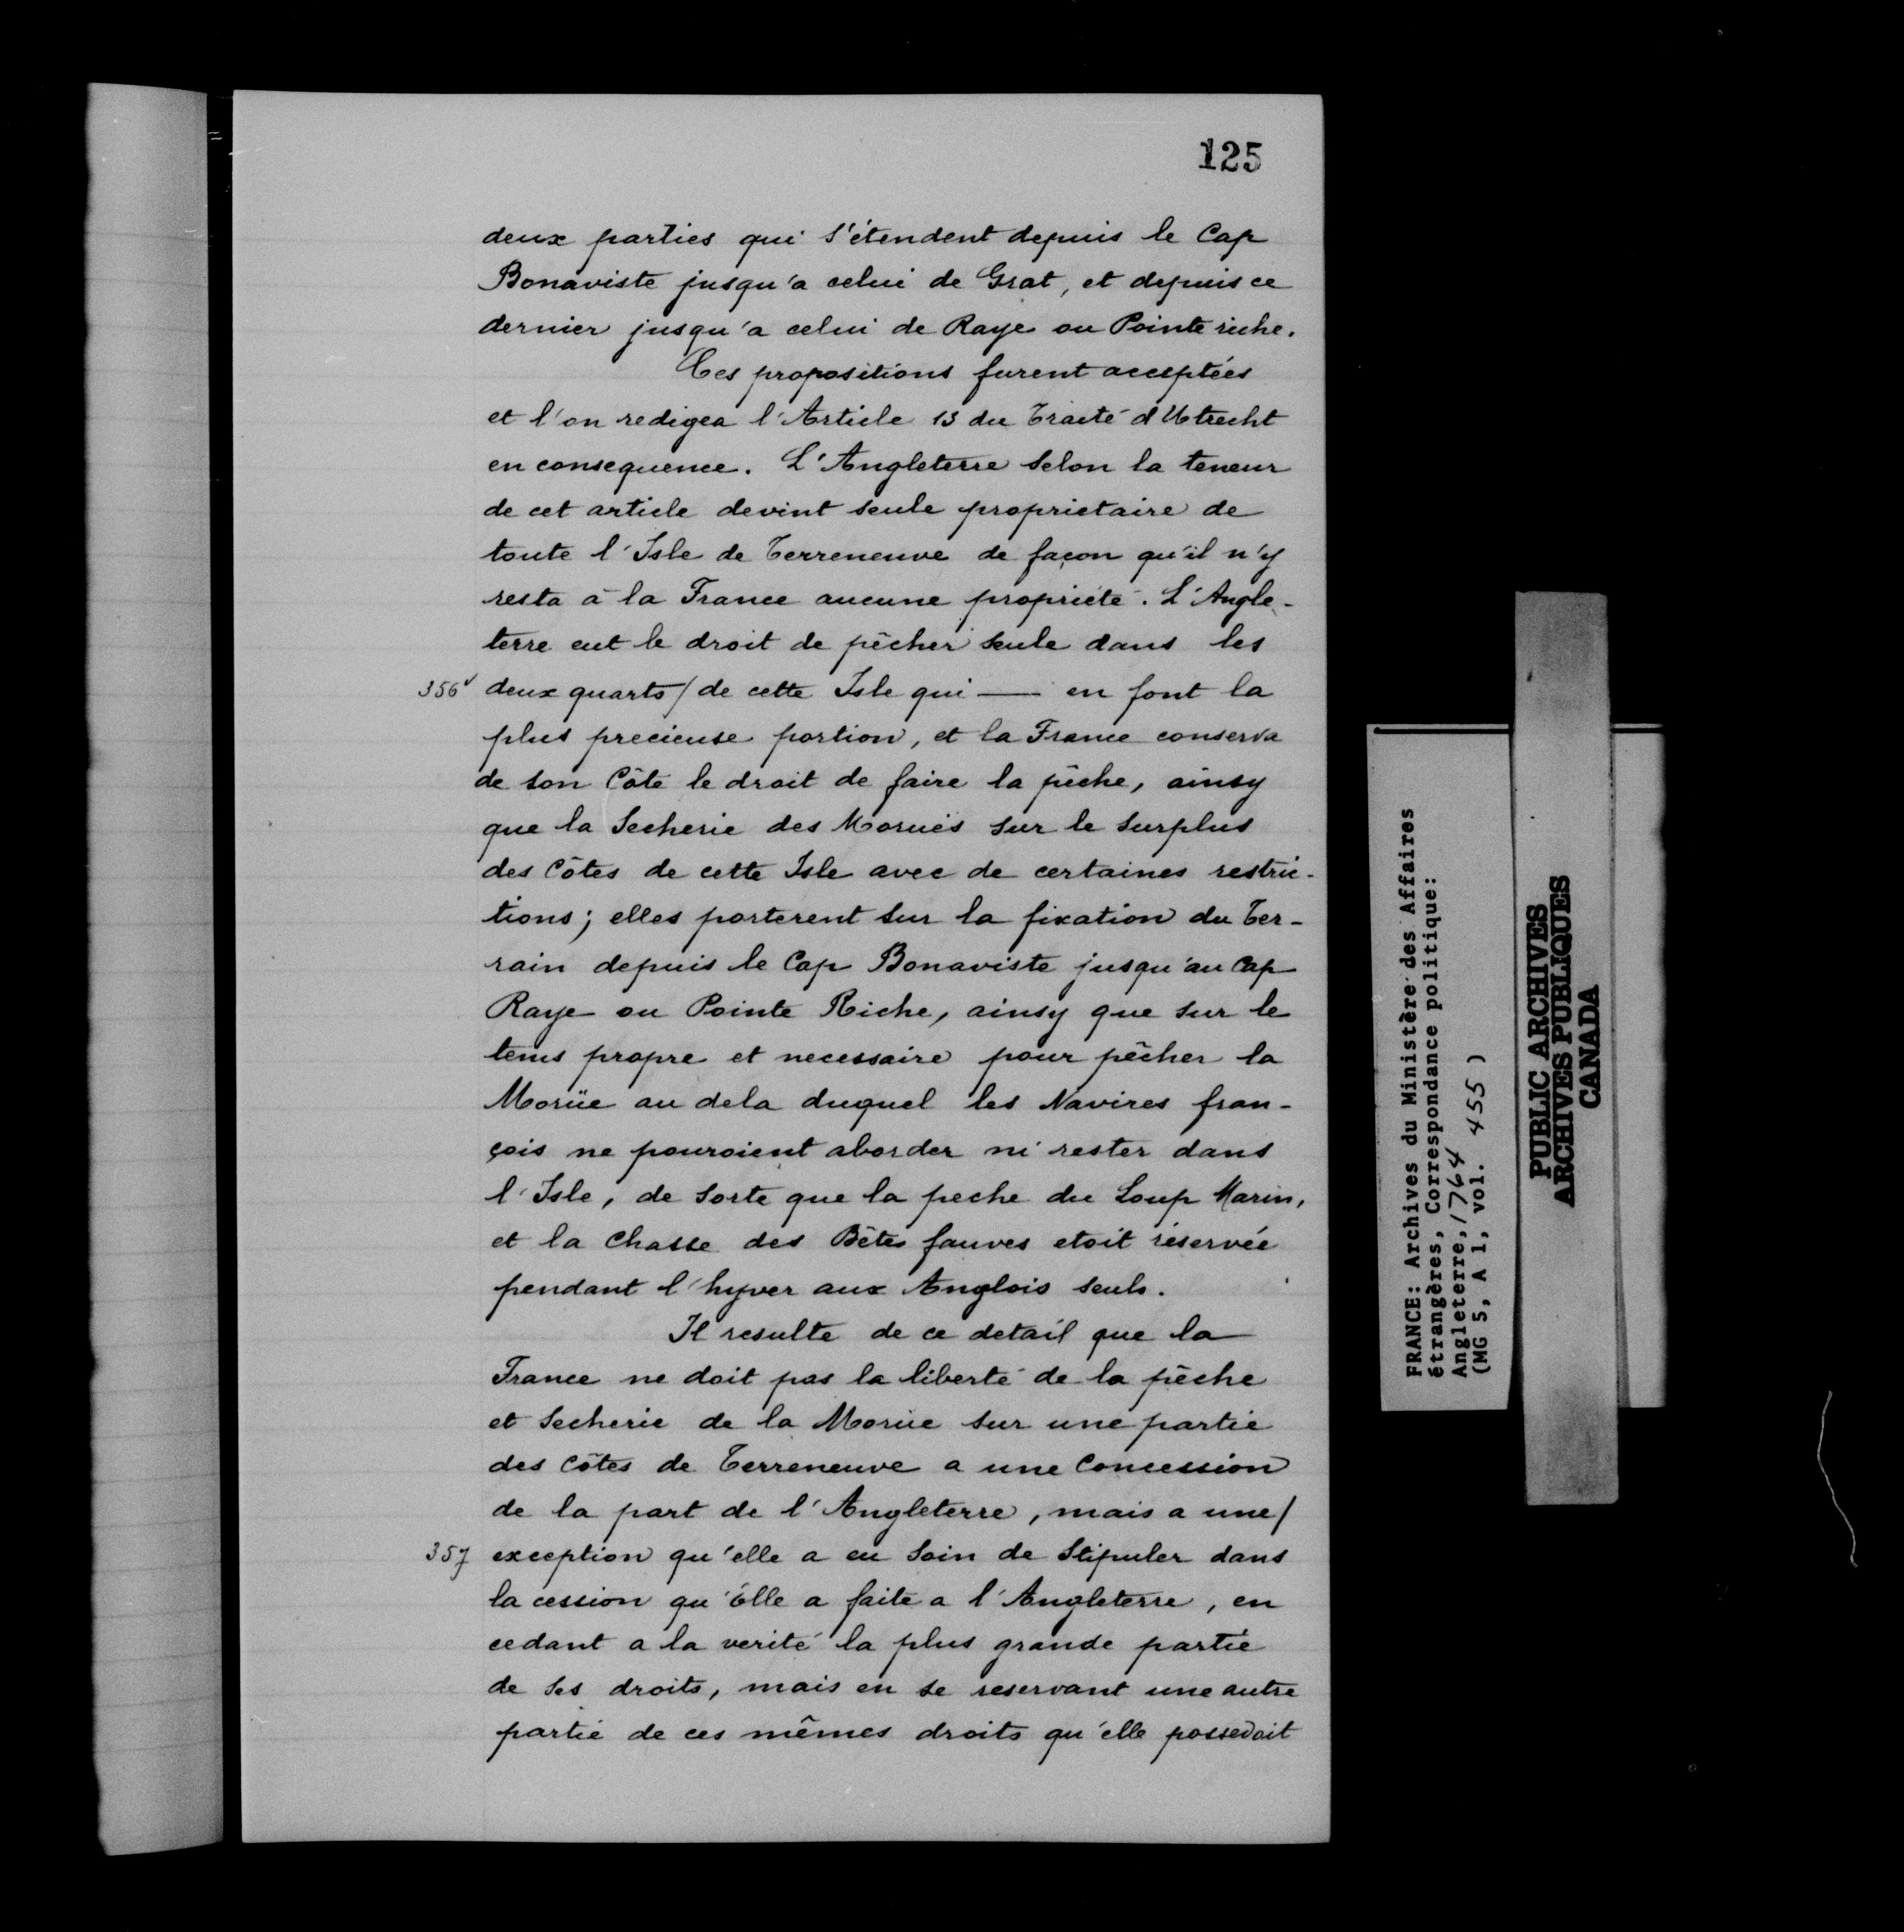 125
deux parties qui s'étendent depuis le Cap
Bonaviste jusqu'a celui de Grat, et depuis ce
dernier jusqu'a celui de Raye ou Pointe riche.
Ces propositions furent acceptées
et l'on redigea l'Article 13 du Traité d'Utrecht
en consequence. L'Angleterre selon la teneur
de cet article devint seule proprietaire de
toute l'Isle de Terreneuve de façon qu'il n'y
resta à la France aucune propriété. L'Angle-
terre eut le droit de pêcher seule dans les
356v deux quarts / de cette Isle qui — en font la
plus precieuse portion, et la France conserva
de son Côté le droit de faire la pêche, ainsy
que la Secherie des Morues sur le surplus
des Côtes de cette Isle avec de certaines restric-
tions; elles porterent sur la fixation du Ter-
rain depuis le Cap Bonaviste jusqu'au Cap
Raye ou Pointe Riche, ainsy que sur le
tems propre et necessaire pour pêcher la
Morüe au dela duquel les Navires fran-
çois ne pouroient aborder ni rester dans
l'Isle, de sorte que la peche du Loup Marin,
et la Chasse des Bêtes fauves etoit réservée
pendant l'hyver aux Anglois seuls.
Il resulte de ce detail que la
France ne doit pas la liberté de la pêche
et Secherie de la Morüe sur une partie
des Côtes de Terreneuve a une Concession
de la part de l'Angleterre, mais a une /
357 exception qu'elle a eu soin de Stipuler dans
la cession qu'Elle a faite a l'Angleterre, en
cedant a la verité la plus grande partie
de ses droits, mais en se reservant une autre
partie de ces mêmes droits qu'elle possedoit
FRANCE: Archives du Ministère des Affaires
étrangères, Correspondance politique:
Angleterre, 1764
(MG 5, A 1, vol. 455)
PUBLIC ARCHIVES
ARCHIVES PUBLIQUES
CANADA